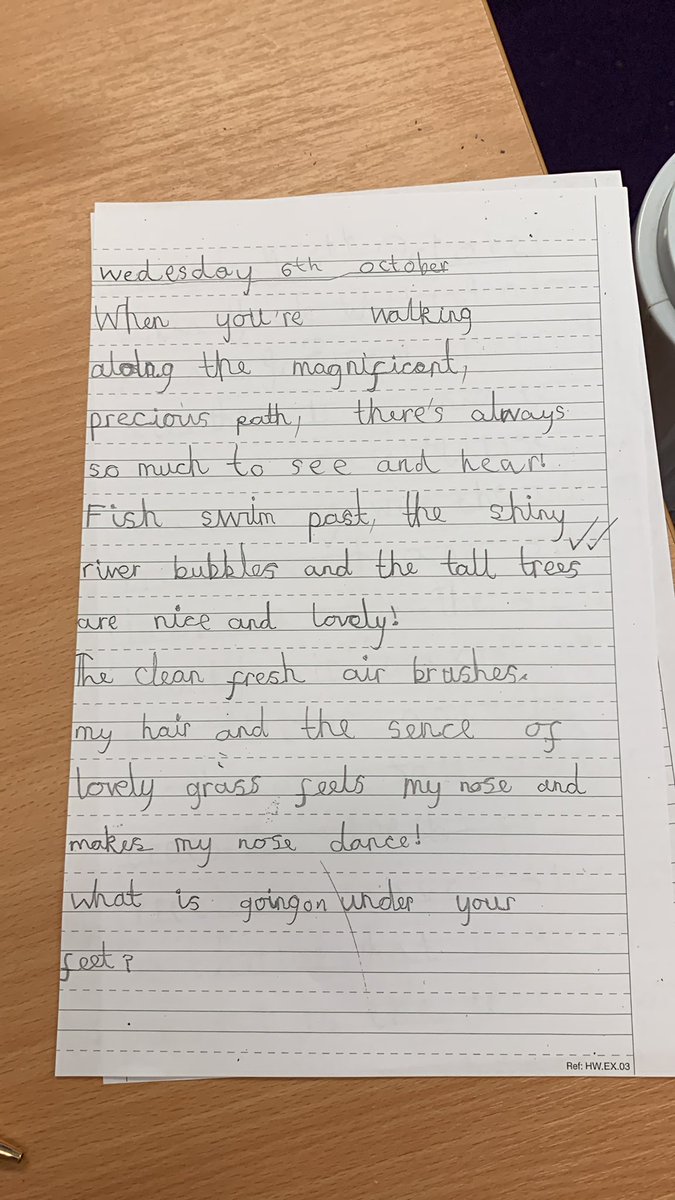 wedesday 6th october
When you're walking
along the magnificent,
precious path, there's always
so much to see and hear!
Fish swim past, the shiny
river bubbles and the tall trees
are nice and lovely!
The clean fresh air brushes
my hair and the sence of
lovely grass feels my nose and
makes my nose dance!
what is going on under your
feet?
Ref: HW.EX.03